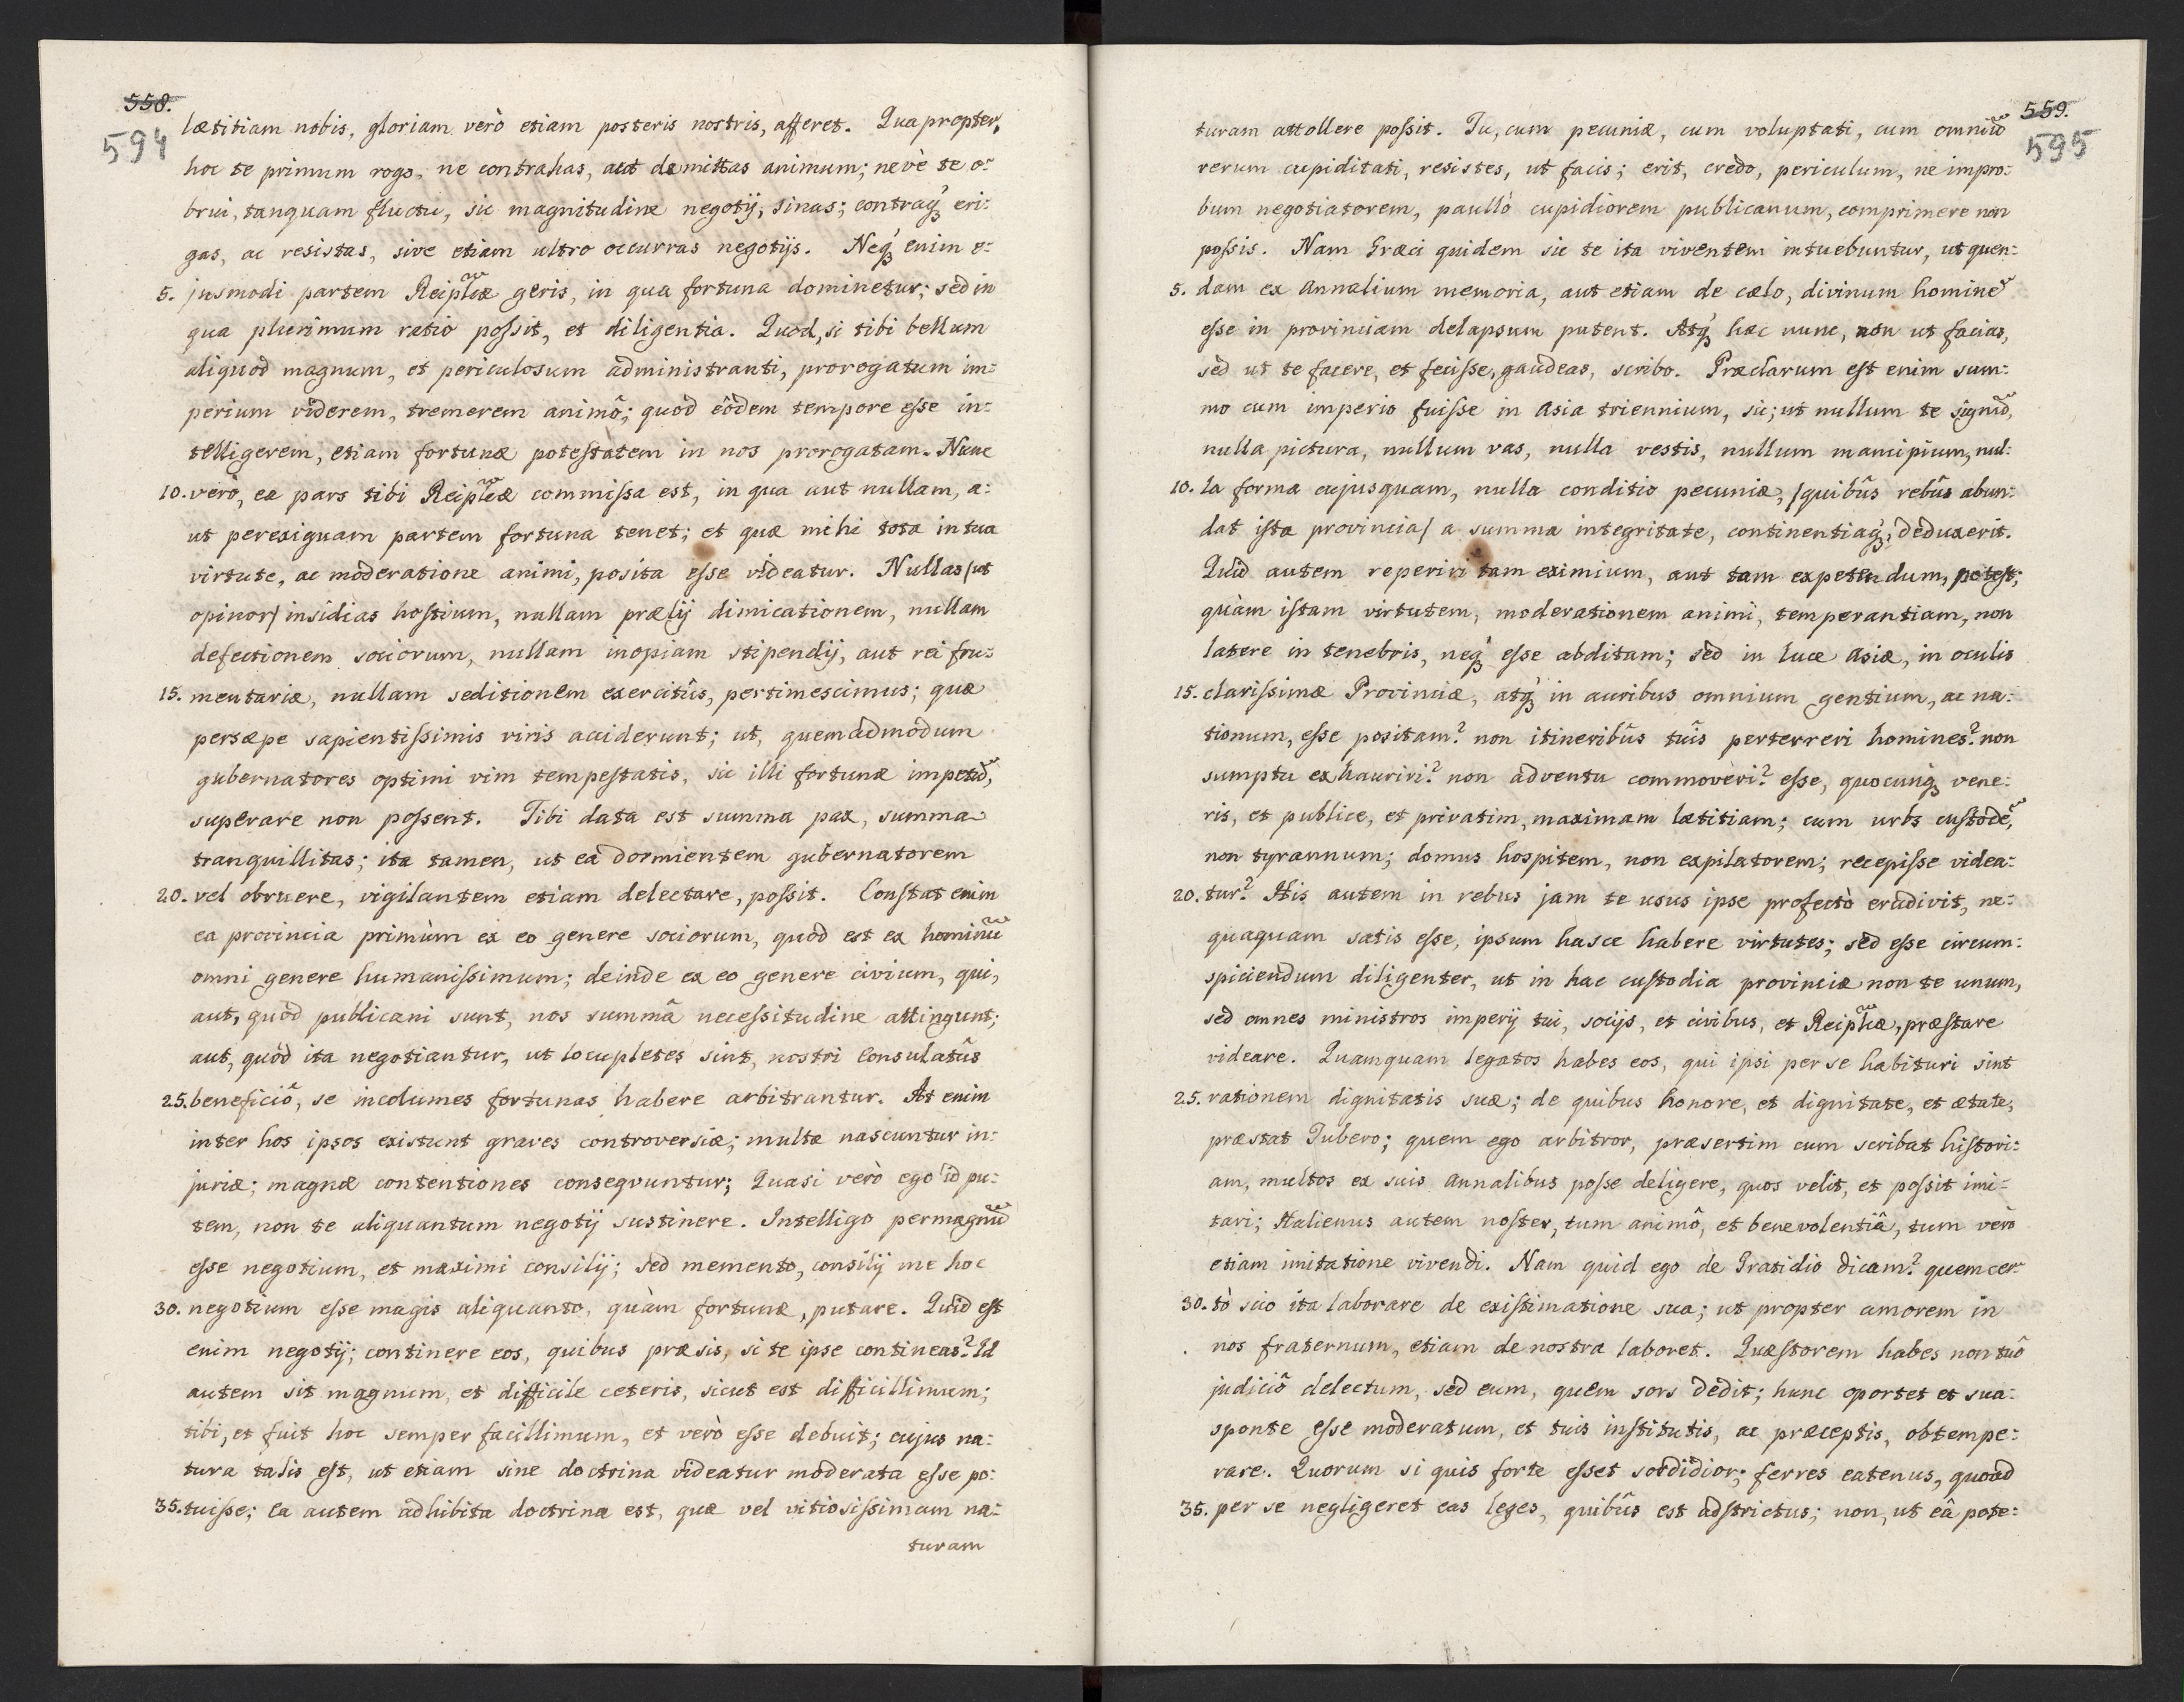 558.
594
lætitiam nobis, gloriam verò etiam posteris nostris, afferet. Quapropter,
hoc te primum rogo, ne contrahas, aut demittas animum; nevè te o=
brui, tanquam fluctu, sic magnitudine negotij, sinas; contraq́ꝫ eri=
gas, ac resistas, sive etiam ultro occurras negotijs. Neq́ꝫ enim e=
5. jusmodi partem Reiplicæ geris, in qua fortuna dominetur; sed in
qua plurimum ratio possit, et diligentia. Quod, si tibi bellum
aliquod magnum, et periculosum administranti, prorogatum im=
perium viderem, tremerem animô; quod eôdem tempore esse in=
telligerem, etiam fortunæ potestatem in nos prorogatam. Nunc
10. verò, ea pars tibi Reiplicæ commissa est, in qua aut nullam, a=
ut perexiguam partem fortuna tenet; et quæ mihi tota in tua
virtute, ac moderatione animi, posita esse videatur. Nullas /ut
opinor/ insidias hostium, nullam prælij dimicationem, nullam
defectionem sociorum, nullam inopiam stipendij, aut rei fru=
15. mentariæ, nullam seditionem exercitûs, pertimescimus; quæ
persæpe sapientissimis viris acciderunt; ut, quemadmodum
gubernatores optimi vim tempestatis, sic illi fortunæ impetũ,
superare non possent. Tibi data est summa pax, summa
tranquillitas; ita tamen, ut ea dormientem gubernatorem
20. vel obruere, vigilantem etiam delectare, possit. Constat enim
ea provincia primùm ex eo genere sociorum, quod est ex hominũ
omni genere humanissimum; deinde ex eo genere civium, qui,
aut, quòd publicani sunt, nos summâ necessitudine attingunt;
aut, quòd ita negotiantur, ut locupletes sint, nostri Consulatûs
25. beneficiô, se incolumes fortunas habere arbitrantur. At enim
inter hos ipsos existunt graves controversiæ; multæ nascuntur in=
juriæ; magnæ contentiones consequuntur; Quasi verò ego id pu=
tem, non te aliquantum negotij sustinere. Intelligo permagnũ
esse negotium, et maximi consilij; sed memento, consilij me hoc
30. negotium esse magis aliquanto, quàm fortunæ, putare. Quid est
enim negotij; continere eos, quibus præsis, si te ipse contineas? Id
autem sit magnum, et difficile ceteris, sicut est difficillimum;
tibi, et fuit hoc semper facillimum, et verò esse debuit; cujus na=
tura talis est, ut etiam sine doctrina videatur moderata esse po=
35. tuisse; ea autem adhibita doctrina est, quæ vel vitiosissimam na=
turam
559.
595
turam attollere possit. Tu, cum pecuniæ, cum voluptati, cum omniũ
rerum cupiditati, resistes, ut facis; erit, credo, periculum, ne impro=
bum negotiatorem, paullò cupidiorem publicanum, comprimere non
possis. Nam Græci quidem sic te ita viventem intuebuntur, ut quen=
5. dam ex Annalium memoria, aut etiam de cælo, divinum hominẽ
esse in provinciam delapsum putent. Atq́ꝫ hæc nunc, non ut facias,
sed ut te facere, et fecisse, gaudeas, scribo. Præclarum est enim sum=
mo cum imperio fuisse in Asia triennium, sic; ut nullum te signũ,
nulla pictura, nullum vas, nulla vestis, nullum mancipium, nul=
10. la forma cujusquam, nulla conditio pecuniæ, /quibûs rebûs abun=
dat ista provincia/ a summa integritate, continentiaq́ꝫ, deduxerit.
Quid autem reperiri tam eximium, aut tam expetendum, potest;
quàm istam virtutem, moderationem animi, temperantiam, non
latere in tenebris, neq́ꝫ esse abditam; sed in luce Asiæ, in oculis
15. clarissimæ Provinciæ, atq́ꝫ in auribus omnium gentium, ac na=
tionum, esse positam? non itineribûs tuîs perterreri homines? non
sumptu exhauriri? non adventu commoveri? esse, quocunq́ꝫ vene=
ris, et publice, et privatim, maximam lætitiam; cum urbs custodẽ,
non tyrannum; domus hospitem, non expilatorem; recepisse videa=
20. tur? His autem in rebus jam te usus ipse profectò erudivit, ne=
quaquam satis esse, ipsum hasce habere virtutes; sed esse circum=
spiciendum diligenter, ut in hac custodia provinciæ non te unum,
sed omnes ministros imperij tui, socijs, et civibus, et Reiplicæ, præstare
videare. Quamquam legatos habes eos, qui ipsi per se habituri sint
25. rationem dignitatis suæ; de quibus honore, et dignitate, et ætate,
præstat Tubero; quem ego arbitror, præsertim cum scribat histori=
am, multos ex suis Annalibus posse deligere, quos velit, et possit imi=
tari; Halienus autem noster, tum animô, et benevolentiâ, tum verò
etiam imitatione vivendi. Nam quid ego de Gratidio dicam? quem cer=
30. tò scio ita laborare de existimatione sua; ut propter amorem in
nos fraternum, etiam de nostra laboret. Quæstorem habes non tuô
judiciô delectum, sed eum, quem sors dedit; hunc oportet et sua=
sponte esse moderatum, et tuis institutis, ac præceptis, obtempe=
rare. Quorum si quis forte esset sordidior; ferres eatenus, quoad
35. per se negligeret eas leges, quibûs est adstrictus; non, ut eâ pote=